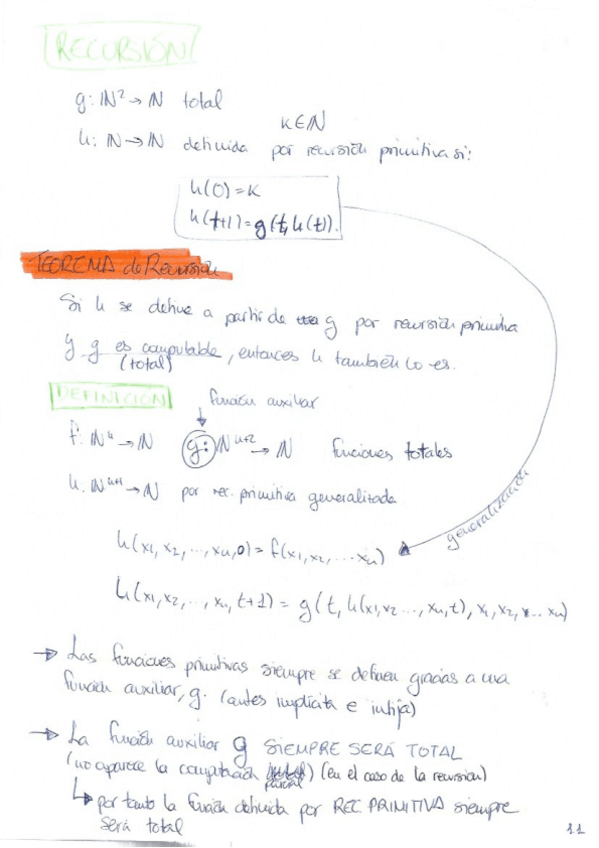 RECURSIÓN
g: ℕ² → ℕ total
k ∈ ℕ
h: ℕ → ℕ definida por recursión primitiva si:
h(0) = k
h(t+1) = g(t, h(t)).
TEOREMA de Recursión
Si h se define a partir de g por recursión primitiva
y g es computable, entonces h también lo es.
(total)
DEFINICIÓN
función auxiliar
f: ℕⁿ → ℕ g: ℕⁿ⁺² → ℕ funciones totales
h: ℕⁿ⁺¹ → ℕ por rec. primitiva generalizada
generalización
h(x₁, x₂, ..., xₙ, 0) = f(x₁, x₂, ... xₙ)
h(x₁, x₂, .., xₙ, t+1) = g(t, h(x₁, x₂ ..., xₙ, t), x₁, x₂, ... xₙ)
→ Las funciones primitivas siempre se definen gracias a una
función auxiliar, g. (antes implícita e)
→ La función auxiliar g SIEMPRE SERÁ TOTAL
(no aparece la computación parcial) (en el caso de la recursión)
↳ por tanto la función definida por REC. PRIMITIVA siempre
será total
11